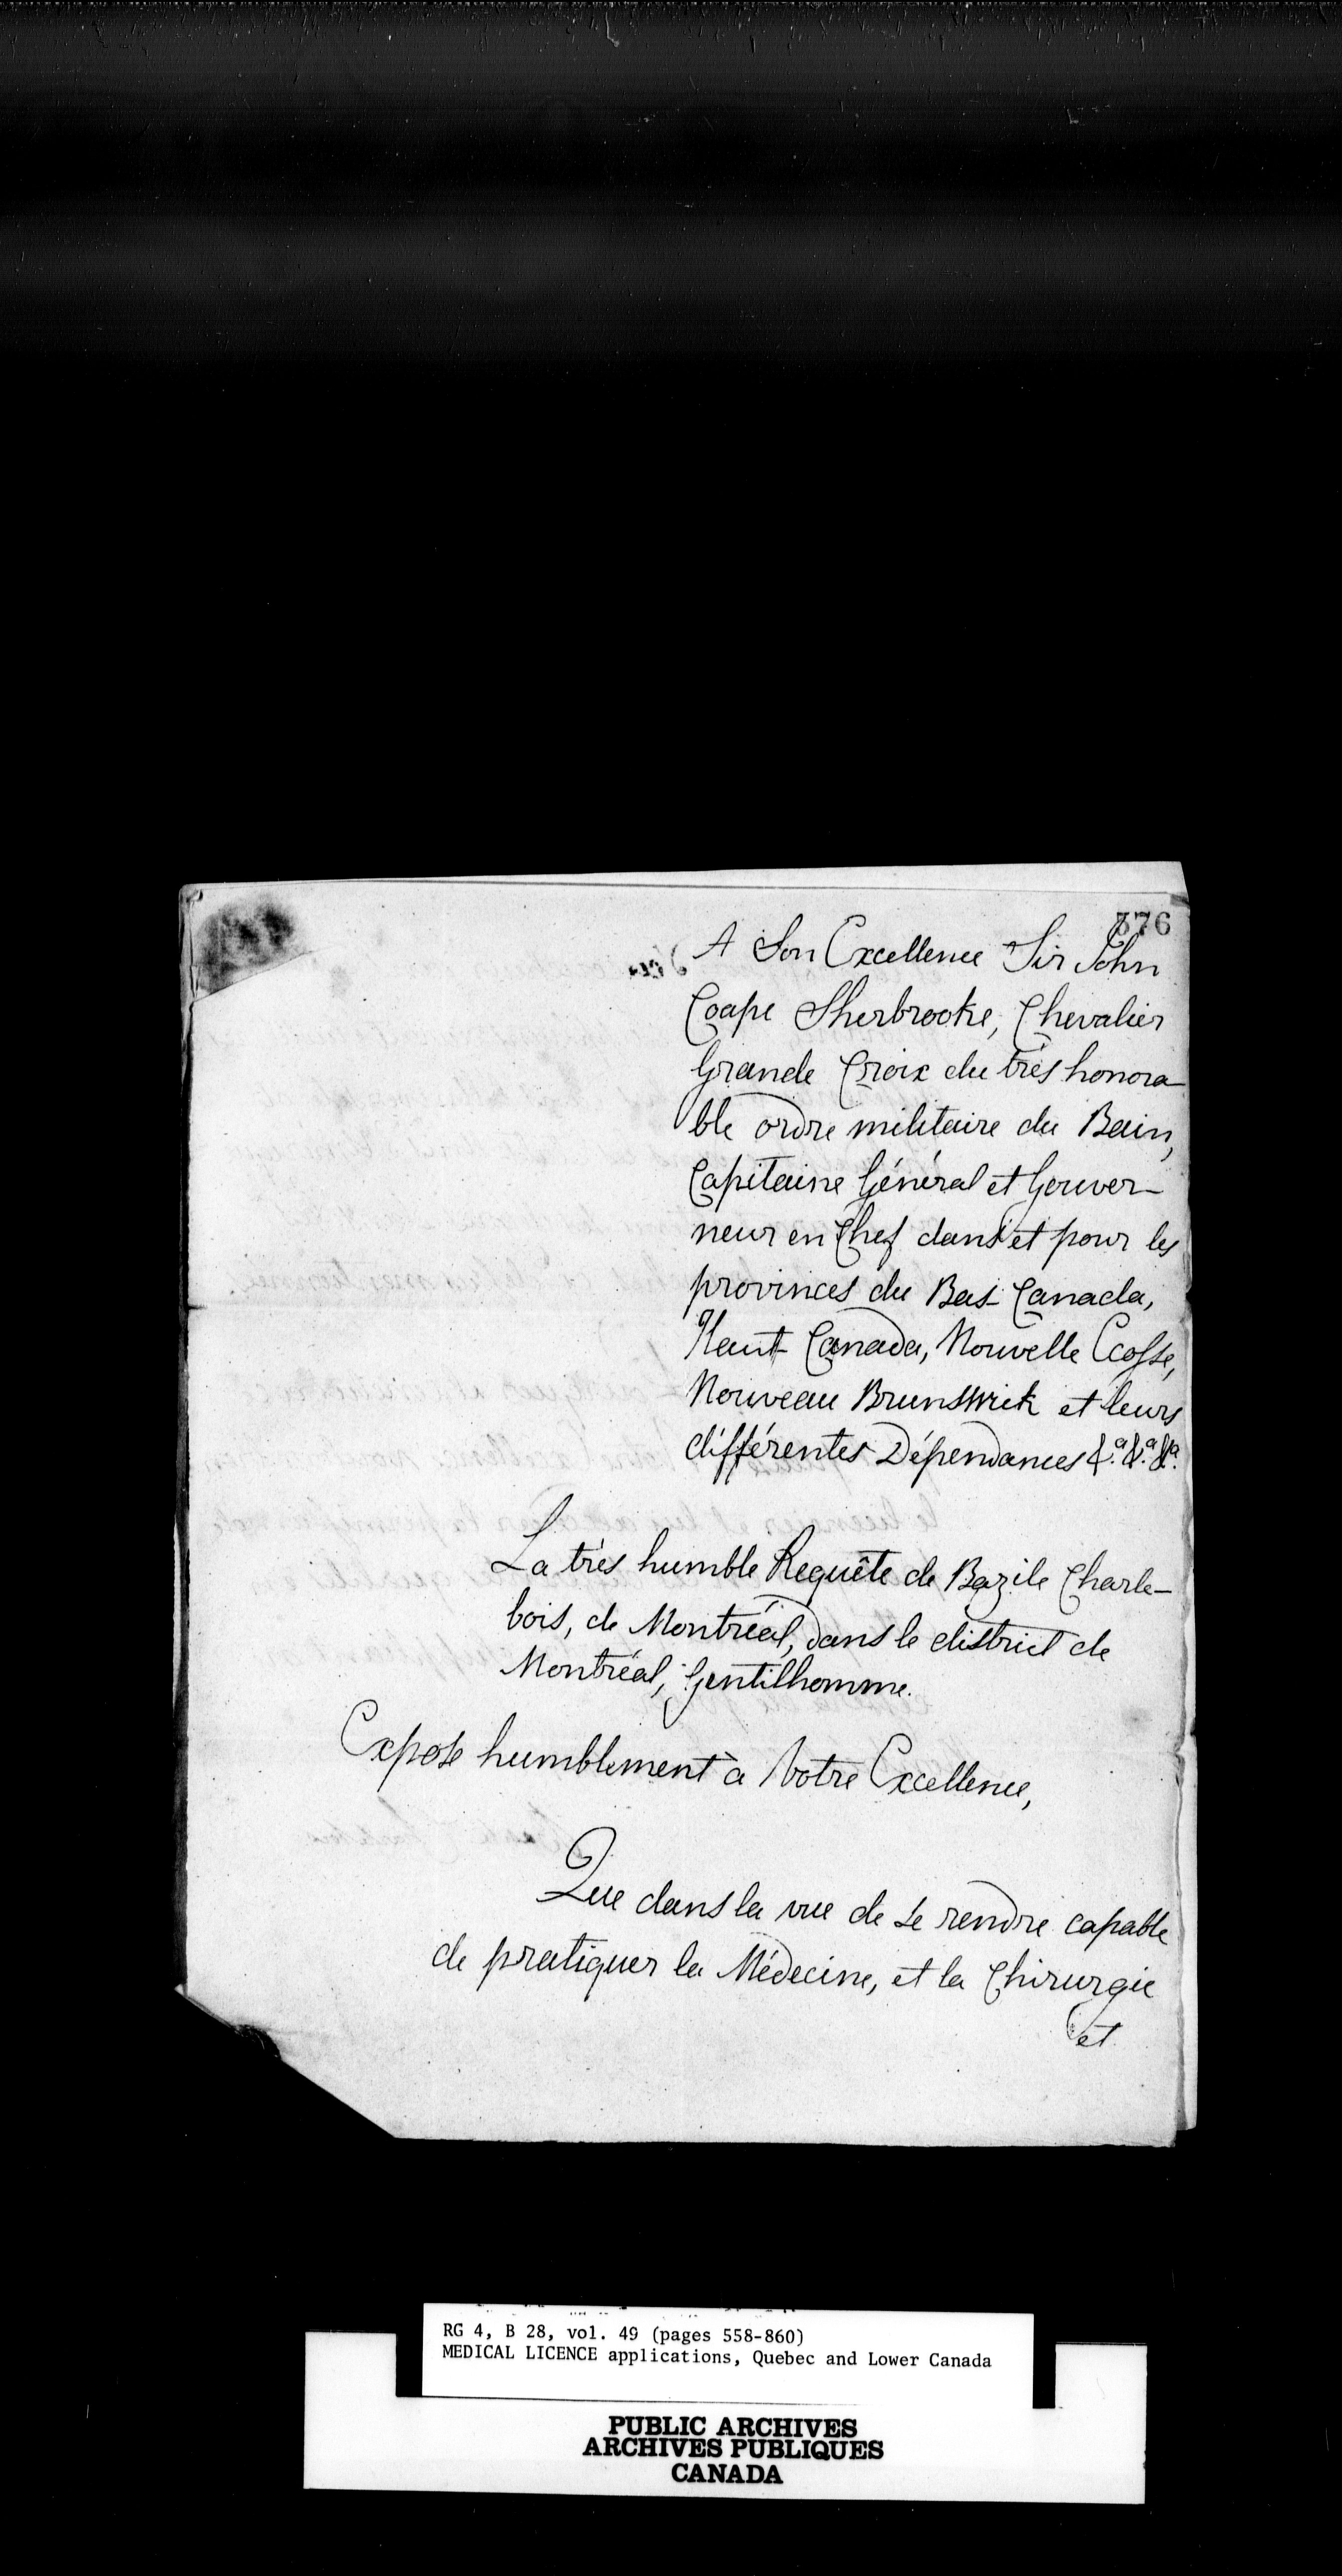 376
A Son Excellence Sir John
Coape Sherbrooke, Chevalier
Grande Croix du très honora-
ble ordre militaire du Bain,
Capitaine Général et Gouver-
neur en Chef dans et pour les
provinces du Bas-Canada,
Haut-Canada, Nouvelle Ecosse,
Nouveau Brunswick et leurs
différentes Dépendances &.a &.a &.a
La très humble Requête de Bazile Charle-
bois, de Montréal, dans le district de
Montréal, Gentilhomme.
Expose humblement à Votre Excellence,
Que dans la vue de se rendre capable
de pratiquer la Médecine, et la Chirurgie
et
RG 4, B 28, vol. 49 (pages 558-860)
MEDICAL LICENCE applications, Quebec and Lower Canada
PUBLIC ARCHIVES
ARCHIVES PUBLIQUES
CANADA